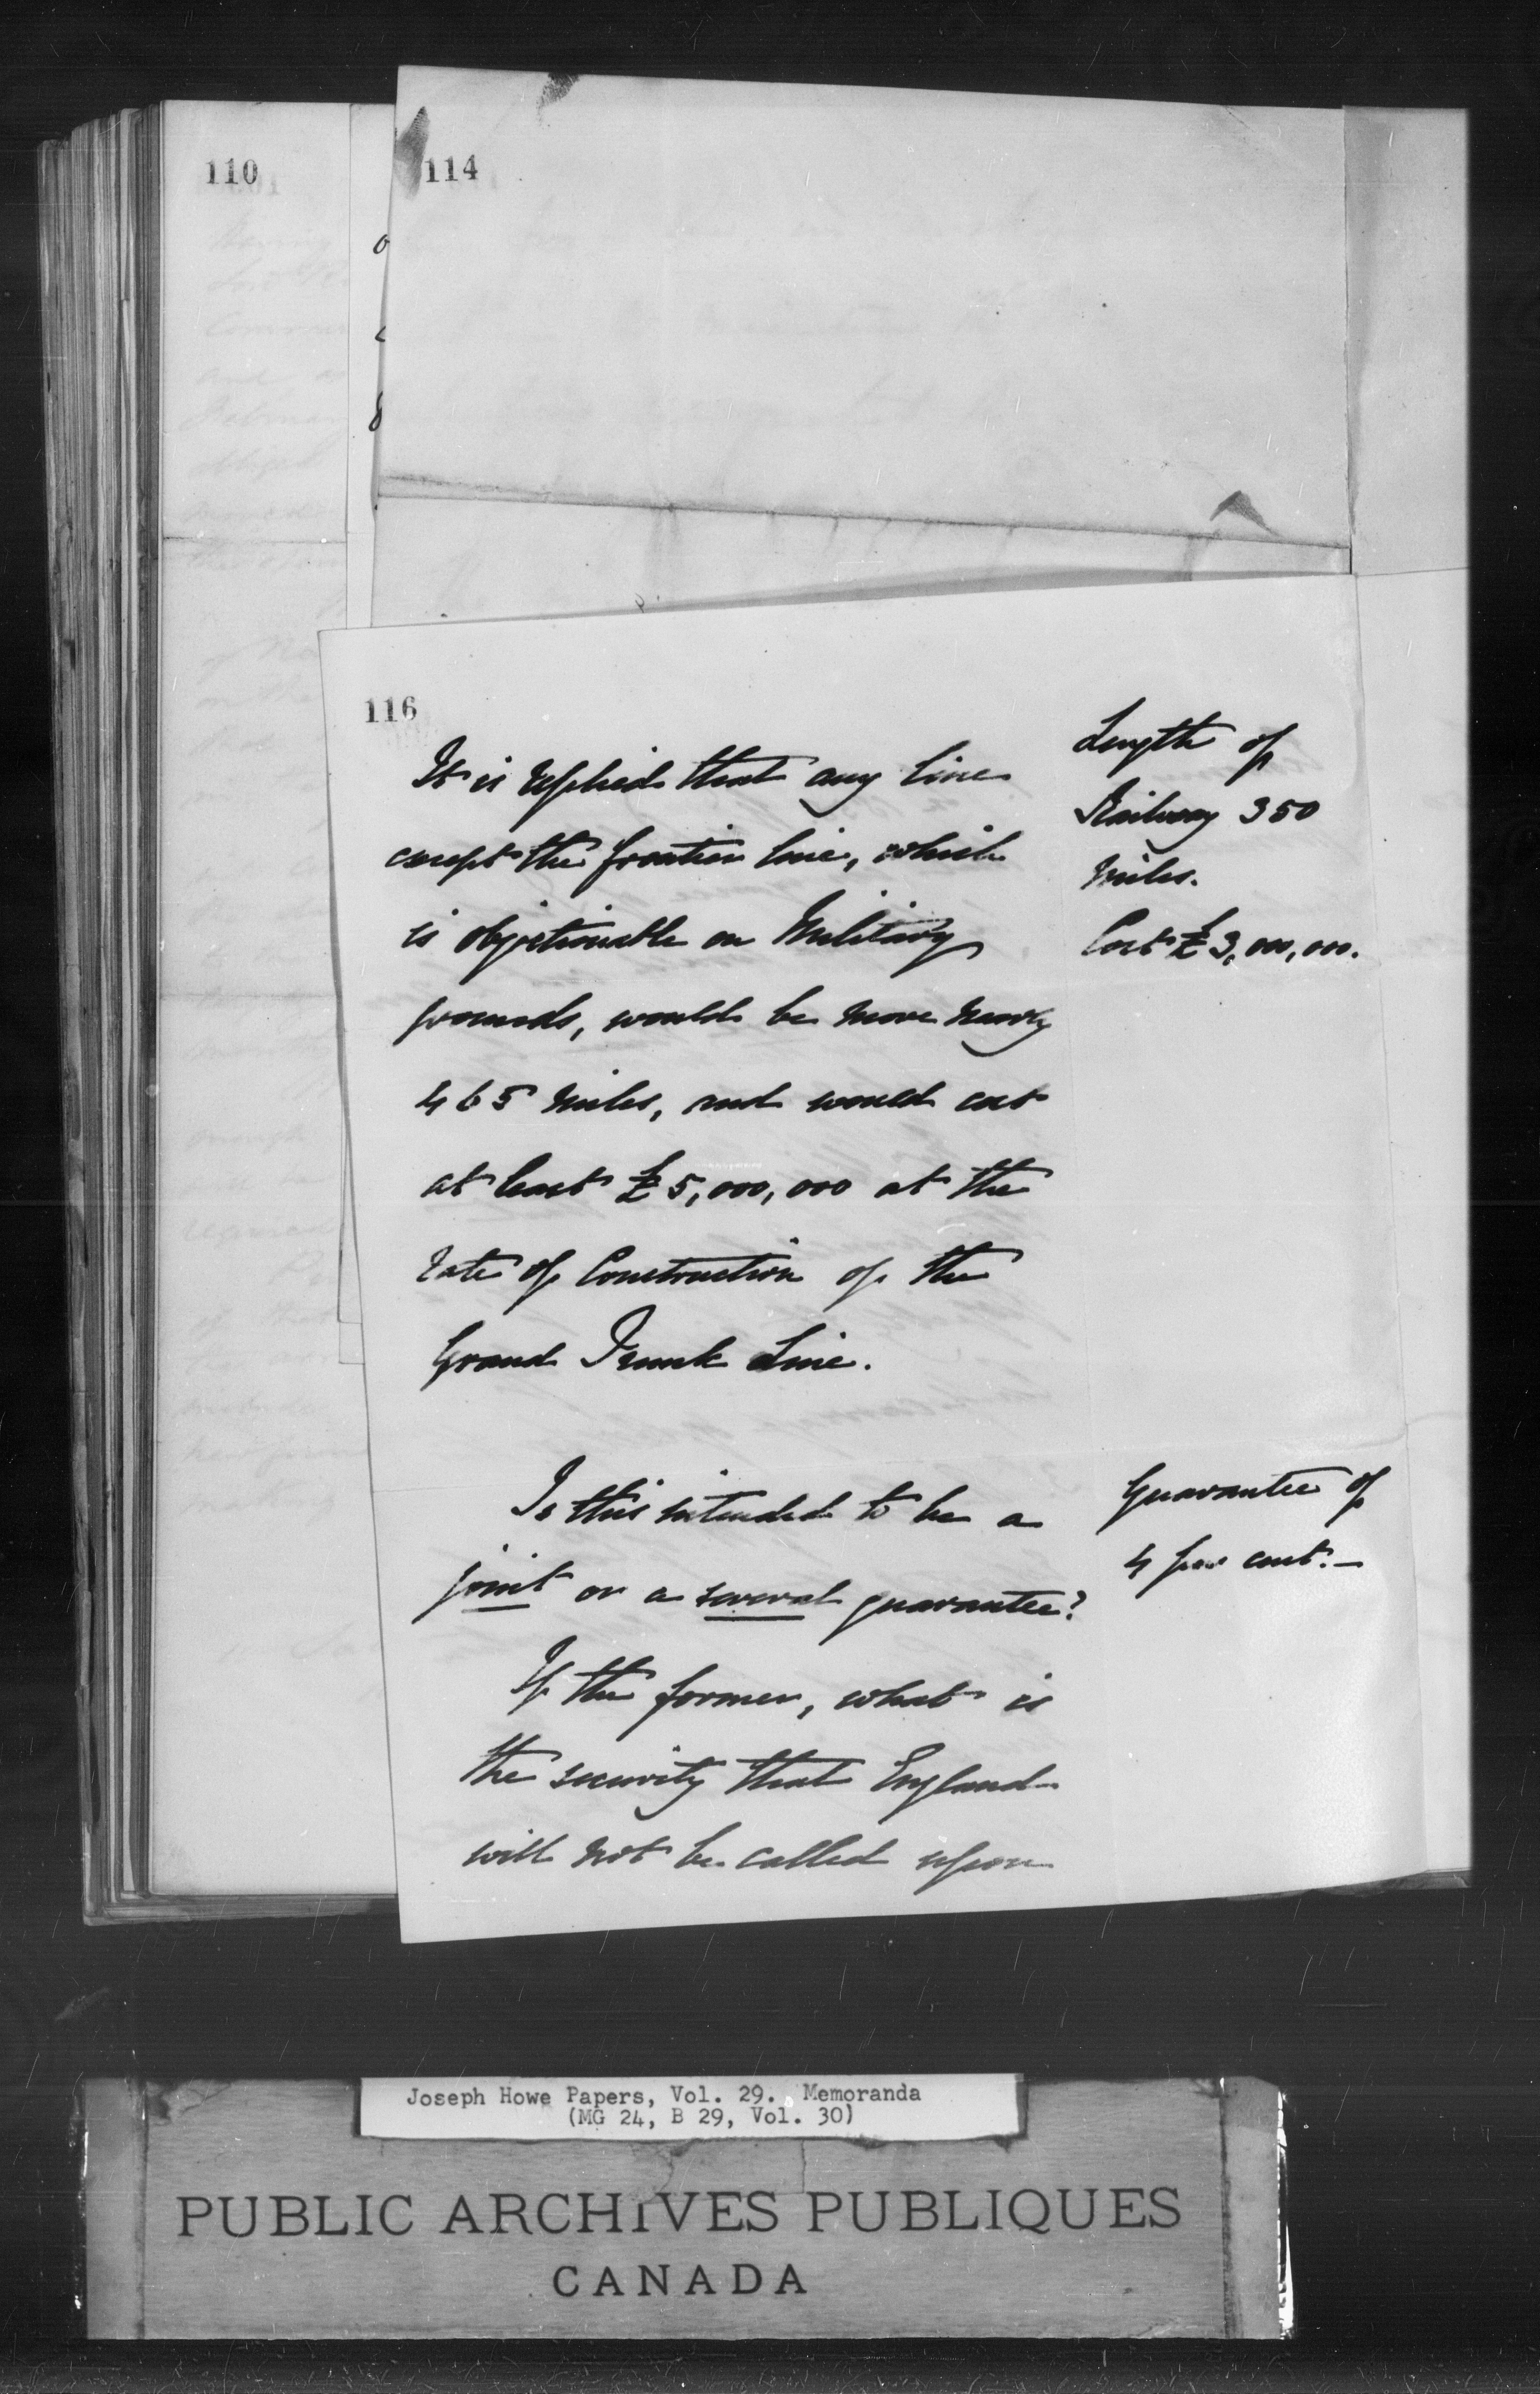 110
114
116
It is replied that any line
except the frontier line, which
is objectionable on Military
grounds, would be more nearly
465 miles, and would cost
at least £5,000,000 at the
rate of Construction of the
Grand Trunk Line.
Length of
Railway 350
miles.
Cost £3,000,000.
Is this intended to be a
joint or a several guarantee?
If the former, what is
the security that England
will not be called upon
Guarantee of
4 per cent. —
Joseph Howe Papers, Vol. 29. Memoranda
(MG 24, B 29, Vol. 30)
PUBLIC ARCHIVES PUBLIQUES
CANADA